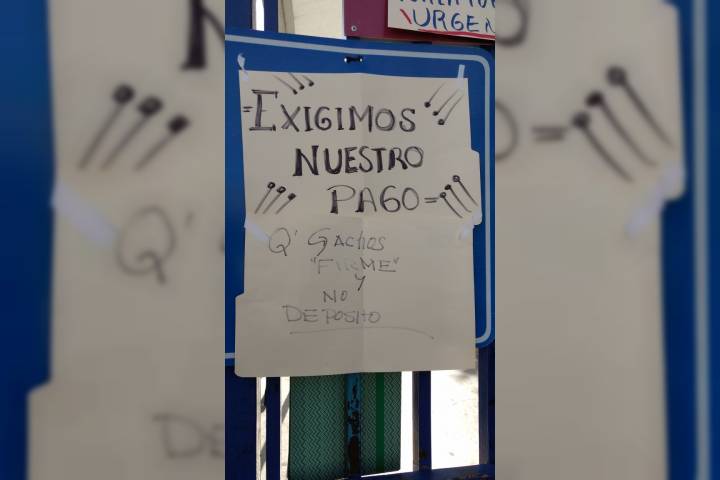 URGEN
=EXIGIMOS
NUESTRO
PAGO=
Q' GACHOS
"FIRME"
Y
NO
DEPOSITO